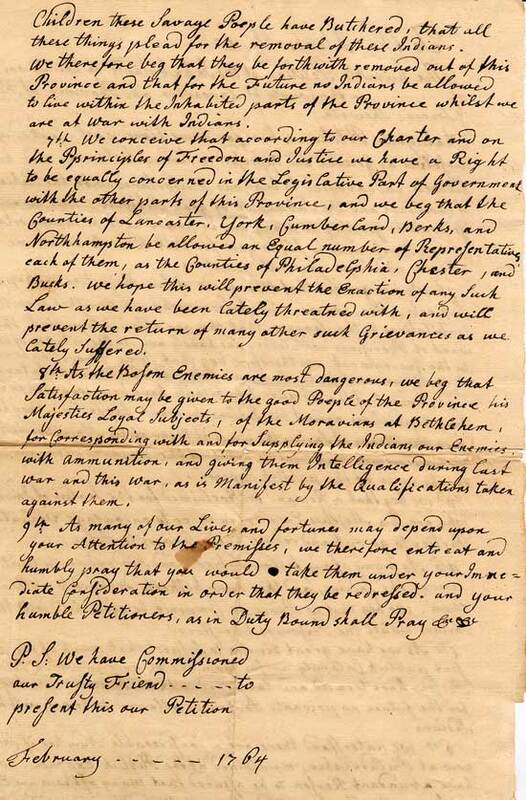 Children these Savage People have Butchered, that all
these things plead for the removal of these Indians.
We therefore beg that they be forthwith removed out of this
Province and that for the Future no Indians be allowed
to live within the Inhabited parts of the Province whilst we
are at War with Indians.
7th. We conceive that according to our Charter and on
the Pprinciples of Freedom and Justice we have a Right
to be equally concerned in the Legislative Part of Government
with the other parts of this Province, and we beg that the
Counties of Lancaster, York, Cumberland, Berks, and
Northhampton be allowed an Equal number of Representatives
each of them, as the Counties of Philadelphia, Chester, and
Bucks. We hope this will prevent the Enaction of any Such
Law as we have been lately threatned with, and will
prevent the return of many other such Grievances as we
lately Suffered.
8th As the Bosom Enemies are most dangerous, we beg that
Satisfaction may be given to the good People of the Province his
Majesties Loyal Subjects, of the Moravians at Bethlehem,
for Corresponding with and for Supplying the Indians our Enemies
with Ammunition, and giving them Intelligence during Last
war and this War, as is Manifest by the Qualifications taken
against them.
9th As many of our Lives and fortunes may depend upon
your Attention to the Premisses, we therefore entreat and
humbly pray that you would take them under your Imme-
diate Consideration in order that they be redressed. and your
humble Petitioners, as in Duty Bound shall Pray &c &c
P. S. We have Commissioned
our Trusty Friend - - - - - to
present this our Petition
February - - - - - - 1764